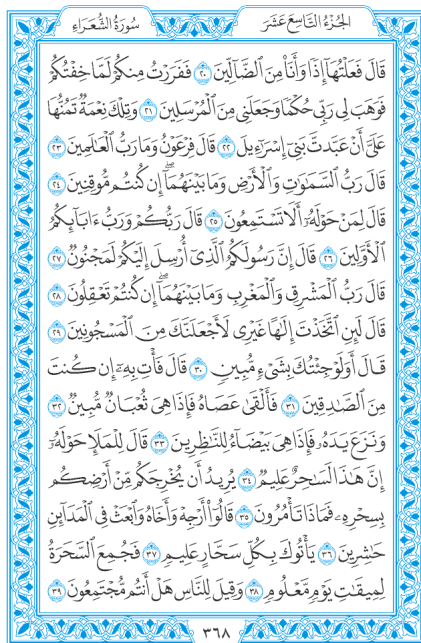 الجُزْءُ التَّاسِعَ عَشَرَ
سُورَةُ الشُّعَرَاءِ
قَالَ فَعَلْتُهَآ إِذًا وَأَنَا۠ مِنَ ٱلضَّآلِّينَ ٢٠ فَفَرَرْتُ مِنكُمْ لَمَّا خِفْتُكُمْ
فَوَهَبَ لِى رَبِّى حُكْمًا وَجَعَلَنِى مِنَ ٱلْمُرْسَلِينَ ٢١ وَتِلْكَ نِعْمَةٌ تَمُنُّهَا
عَلَىَّ أَنْ عَبَّدتَّ بَنِىٓ إِسْرَٰٓءِيلَ ٢٢ قَالَ فِرْعَوْنُ وَمَا رَبُّ ٱلْعَٰلَمِينَ ٢٣
قَالَ رَبُّ ٱلسَّمَٰوَٰتِ وَٱلْأَرْضِ وَمَا بَيْنَهُمَآ ۖ إِن كُنتُم مُّوقِنِينَ ٢٤
قَالَ لِمَنْ حَوْلَهُۥٓ أَلَا تَسْتَمِعُونَ ٢٥ قَالَ رَبُّكُمْ وَرَبُّ ءَابَآئِكُمُ
ٱلْأَوَّلِينَ ٢٦ قَالَ إِنَّ رَسُولَكُمُ ٱلَّذِىٓ أُرْسِلَ إِلَيْكُمْ لَمَجْنُونٌ ٢٧
قَالَ رَبُّ ٱلْمَشْرِقِ وَٱلْمَغْرِبِ وَمَا بَيْنَهُمَآ ۖ إِن كُنتُمْ تَعْقِلُونَ ٢٨
قَالَ لَئِنِ ٱتَّخَذْتَ إِلَٰهًا غَيْرِى لَأَجْعَلَنَّكَ مِنَ ٱلْمَسْجُونِينَ ٢٩
قَالَ أَوَلَوْ جِئْتُكَ بِشَىْءٍ مُّبِينٍ ٣٠ قَالَ فَأْتِ بِهِۦٓ إِن كُنتَ
مِنَ ٱلصَّٰدِقِينَ ٣١ فَأَلْقَىٰ عَصَاهُ فَإِذَا هِىَ ثُعْبَانٌ مُّبِينٌ ٣٢
وَنَزَعَ يَدَهُۥ فَإِذَا هِىَ بَيْضَآءُ لِلنَّٰظِرِينَ ٣٣ قَالَ لِلْمَلَإِ حَوْلَهُۥٓ
إِنَّ هَٰذَا لَسَٰحِرٌ عَلِيمٌ ٣٤ يُرِيدُ أَن يُخْرِجَكُم مِّنْ أَرْضِكُم
بِسِحْرِهِۦ فَمَاذَا تَأْمُرُونَ ٣٥ قَالُوٓا۟ أَرْجِهْ وَأَخَاهُ وَٱبْعَثْ فِى ٱلْمَدَآئِنِ
حَٰشِرِينَ ٣٦ يَأْتُوكَ بِكُلِّ سَحَّارٍ عَلِيمٍ ٣٧ فَجُمِعَ ٱلسَّحَرَةُ
لِمِيقَٰتِ يَوْمٍ مَّعْلُومٍ ٣٨ وَقِيلَ لِلنَّاسِ هَلْ أَنتُم مُّجْتَمِعُونَ ٣٩
٣٦٨